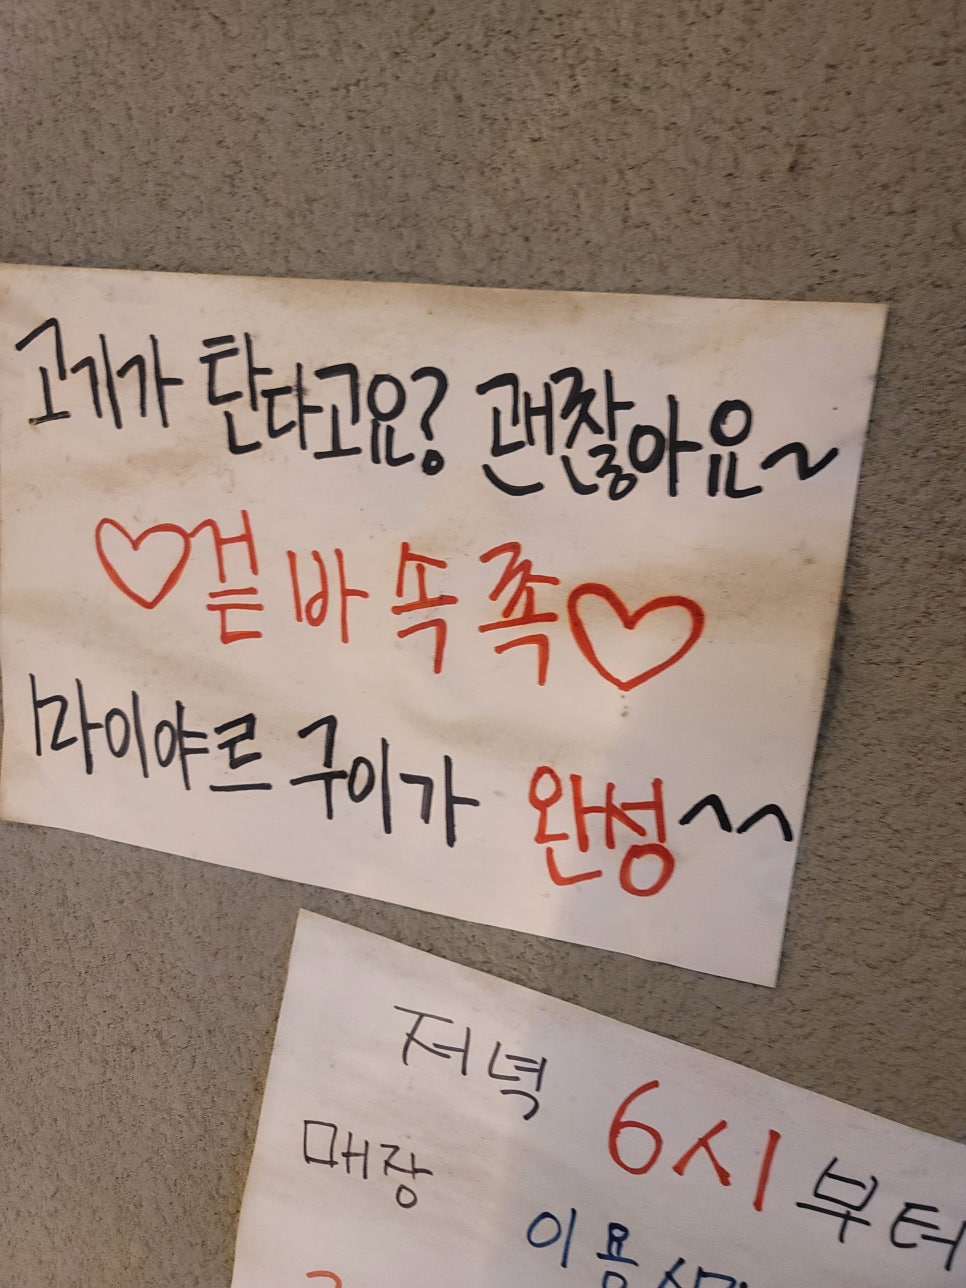 고기가 탄다고요? 괜찮아요~
♡겉바속쪽♡
마라이야르 구이가 완성^^
저녁 6시부터
매장
이용시